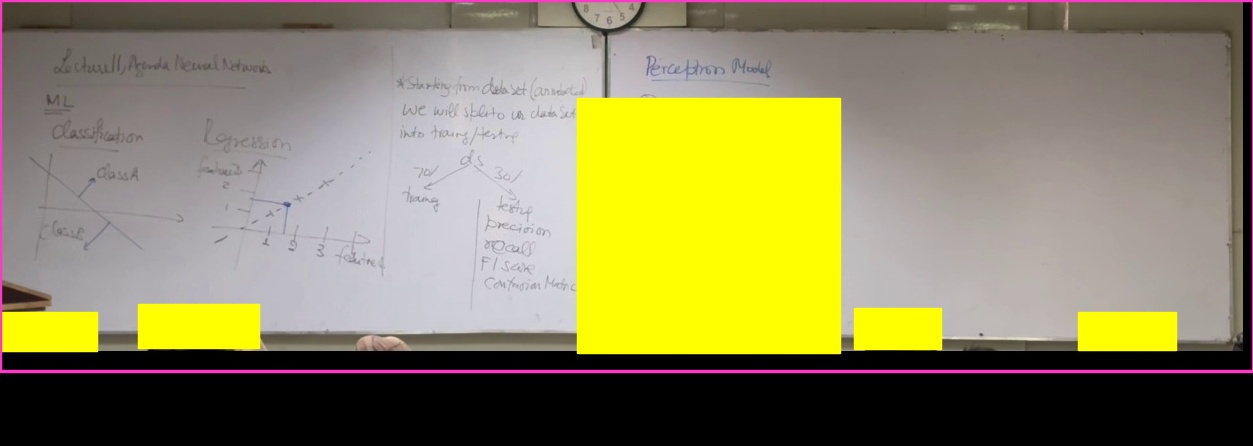 Lecture11, Agenda Neural Networks
ML
Classification
ClassA
ClassB
Regression
feature2
2
1
1 2 3 feature1
*Starting from data set (annotated)
we will split our data set
into training/testing
ds
70% 30%
training
testing
precision
recall
F1 score
Confusion Matric
Perceptron Model
8 7 6 5 4